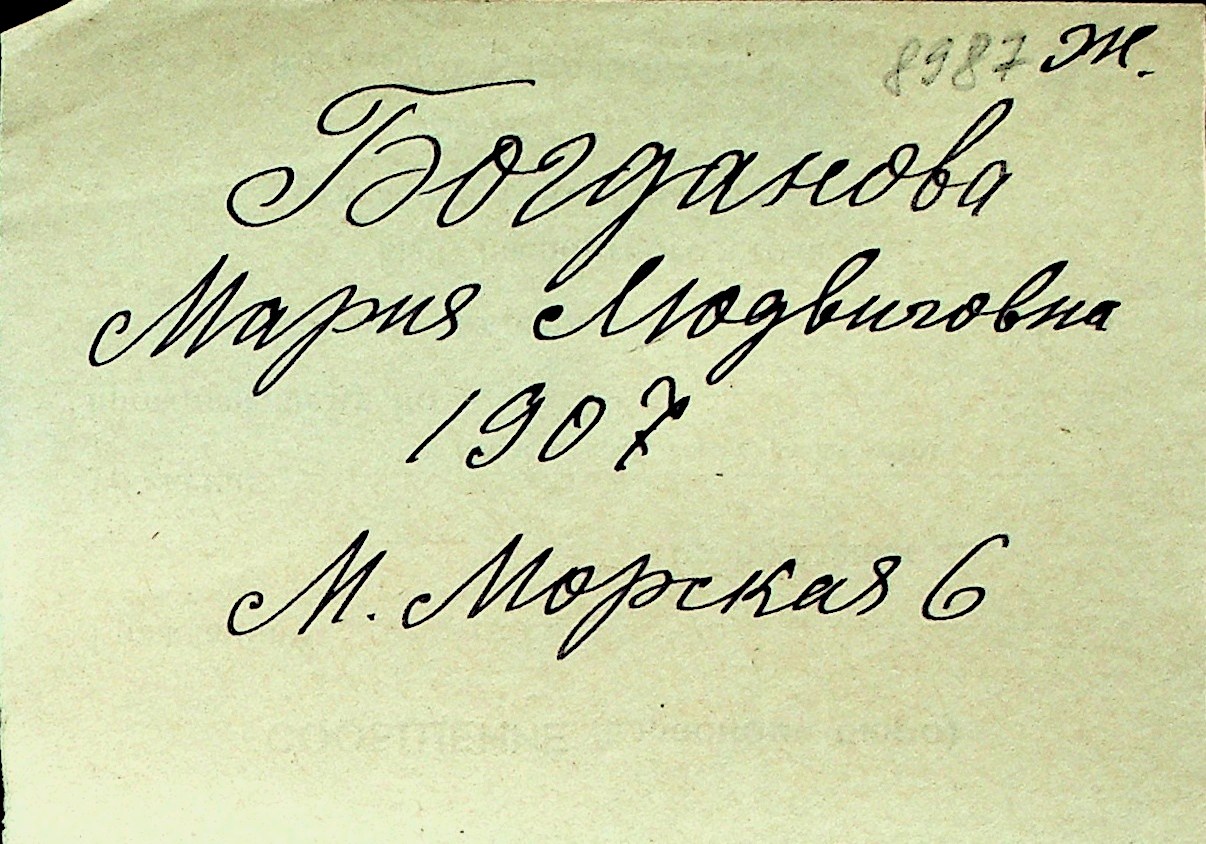 8987 ж.
Богданова
Мария Людвиговна
1907
М. Морская 6